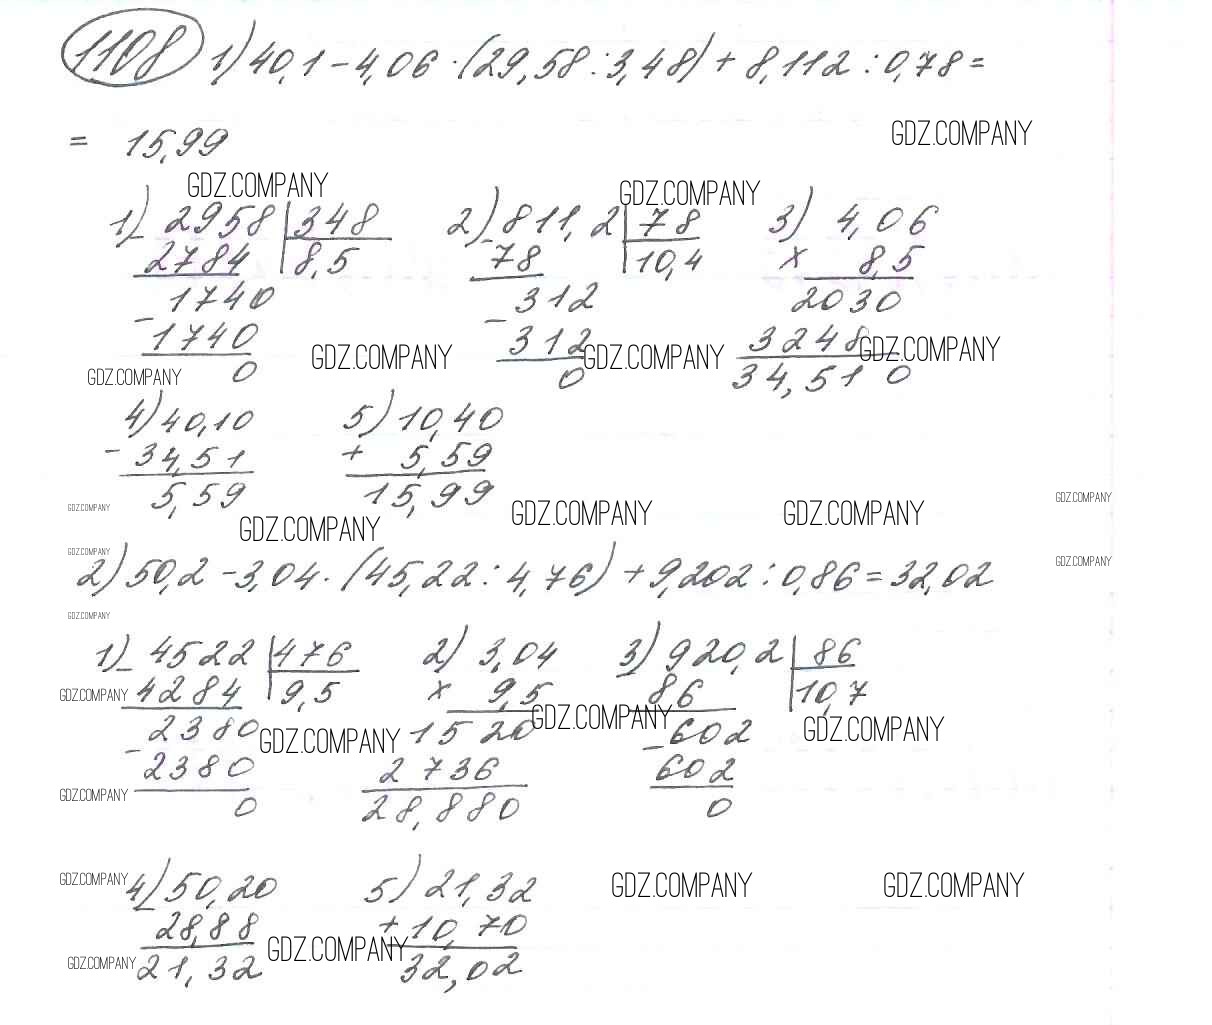 1108 1) 40,1 - 4,06 · (29,58 : 3,48) + 8,112 : 0,78 =
= 15,99
GDZ.COMPANY
GDZ.COMPANY GDZ.COMPANY
1) 2958 | 348 2) 811,2 | 78 3) 4,06
- 2784 | 8,5 - 78 | 10,4 × 8,5
1740 312 2030
- 1740 - 312 3248
0 0 34,510
GDZ.COMPANY GDZ.COMPANY GDZ.COMPANY GDZ.COMPANY
4) 40,10 5) 10,40
- 34,51 + 5,59
5,59 15,99
GDZ.COMPANY GDZ.COMPANY GDZ.COMPANY GDZ.COMPANY GDZ.COMPANY
GDZ.COMPANY GDZ.COMPANY
2) 50,2 - 3,04 · (45,22 : 4,76) + 9,202 : 0,86 = 32,02
GDZ.COMPANY
1) 4522 | 476 2) 3,04 3) 920,2 | 86
- 4284 | 9,5 × 9,5 - 86 | 10,7
2380 1520 602
- 2380 2736 - 602
0 28,880 0
GDZ.COMPANY GDZ.COMPANY GDZ.COMPANY GDZ.COMPANY
GDZ.COMPANY
4) 50,20 5) 21,32
- 28,88 + 10,70
21,32 32,02
GDZ.COMPANY GDZ.COMPANY GDZ.COMPANY
GDZ.COMPANY GDZ.COMPANY